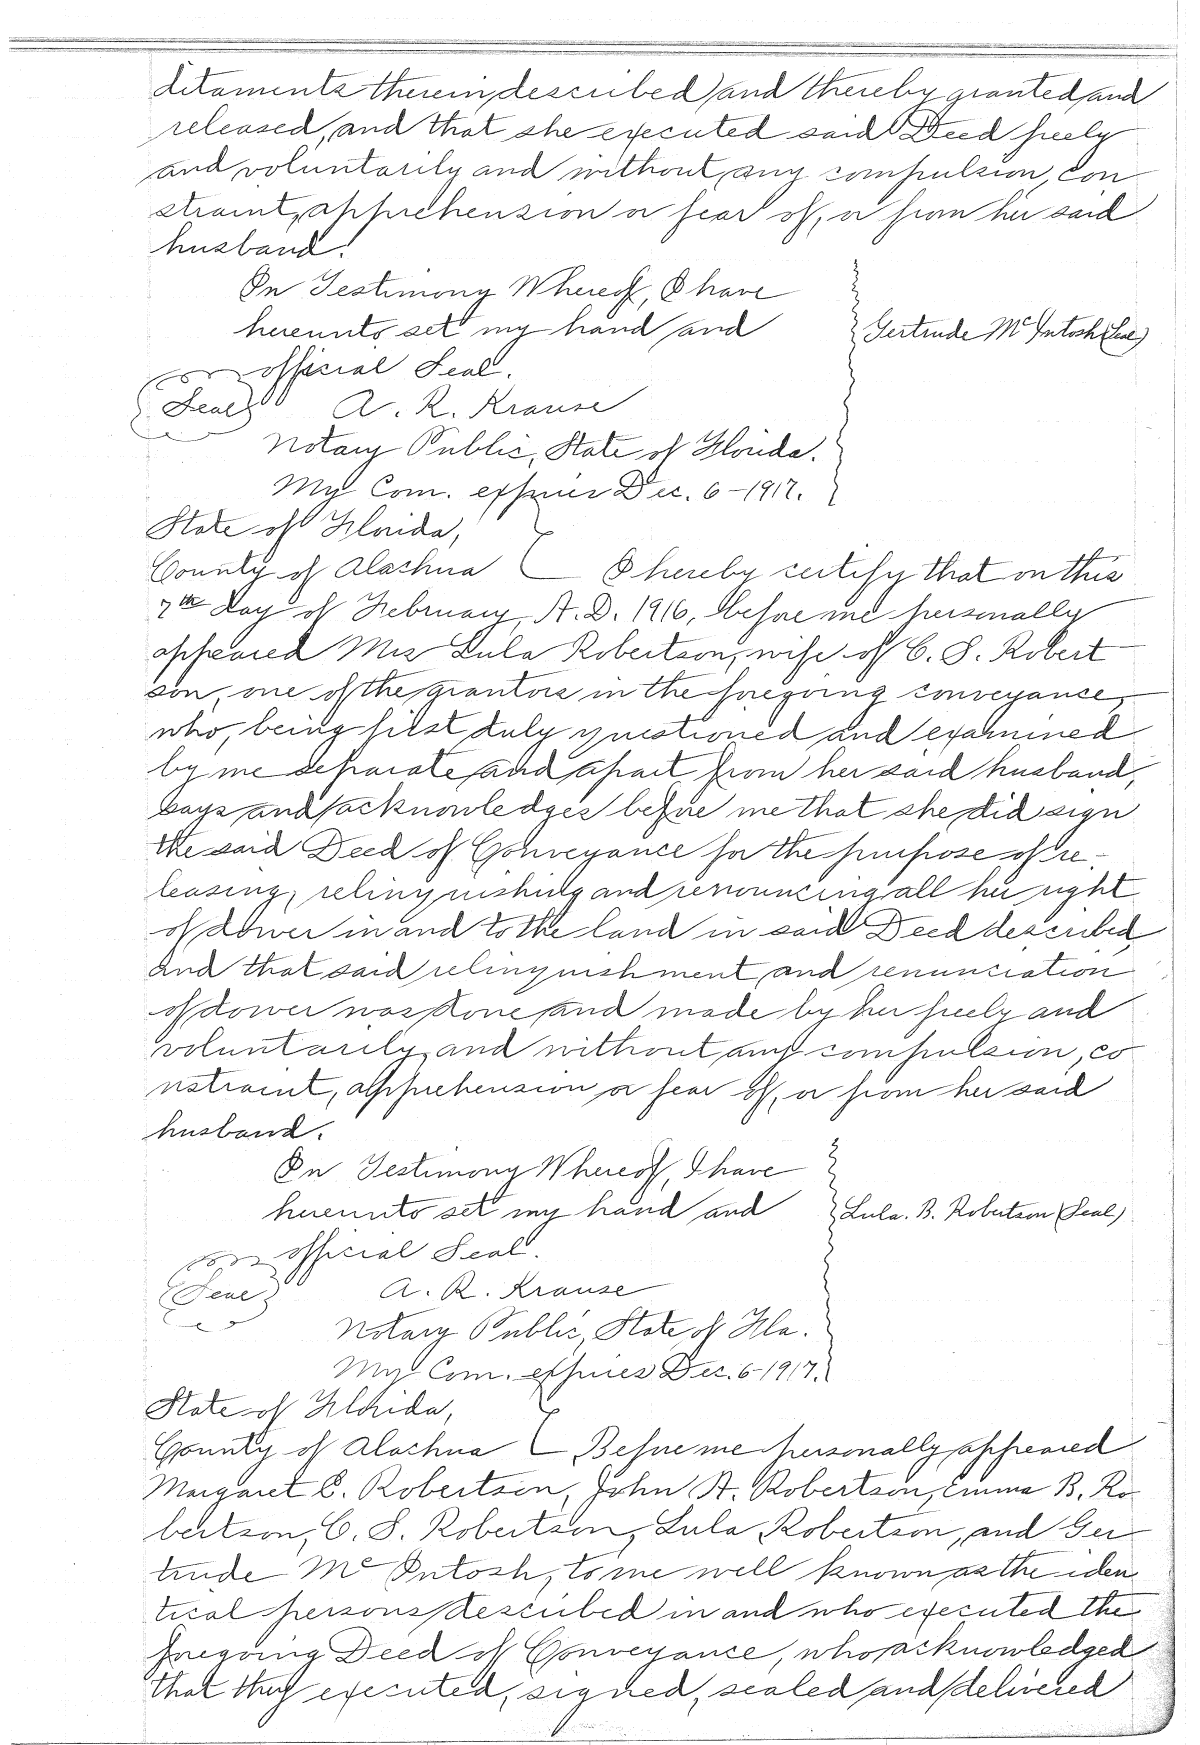 ditaments therein described and thereby granted and
released, and that she executed said Deed freely
and voluntarily and without any compulsion, con
straint, apprehension or fear of, or from her said
husband.
In Testimony Whereof, I have
hereunto set my hand and
Gertrude McIntosh (Seal)
official Seal.
(Seal) A. R. Krause
Notary Public, State of Florida.
My Com. expires Dec. 6-1917.
State of Florida,
County of Alachua I hereby certify that on this
7th day of February, A.D. 1916, before me personally
appeared Mrs Lula Robertson, wife of C. S. Robert
son, one of the grantors in the foregoing conveyance,
who, being first duly questioned and examined
by me separate and apart from her said husband,
says and acknowledges before me that she did sign
the said Deed of Conveyance for the purpose of re-
leasing, relinquishing and renouncing all her right
of dower in and to the land in said Deed described,
and that said relinquishment and renunciation
of dower was done and made by her freely and
voluntarily, and without any compulsion, co
nstraint, apprehension or fear of, or from her said
husband.
In Testimony Whereof, I have
hereunto set my hand and
Lula. B. Robertson (Seal)
official Seal.
(Seal) A. R. Krause
Notary Public, State of Fla.
My Com. expires Dec. 6-1917.
State of Florida,
County of Alachua Before me personally appeared
Margaret E. Robertson, John A. Robertson, Emma B. Ro
bertson, C. S. Robertson, Lula Robertson, and Ger
trude McIntosh, to me well known as the iden
tical persons described in and who executed the
foregoing Deed of Conveyance, who acknowledged
that they executed, signed, sealed and delivered